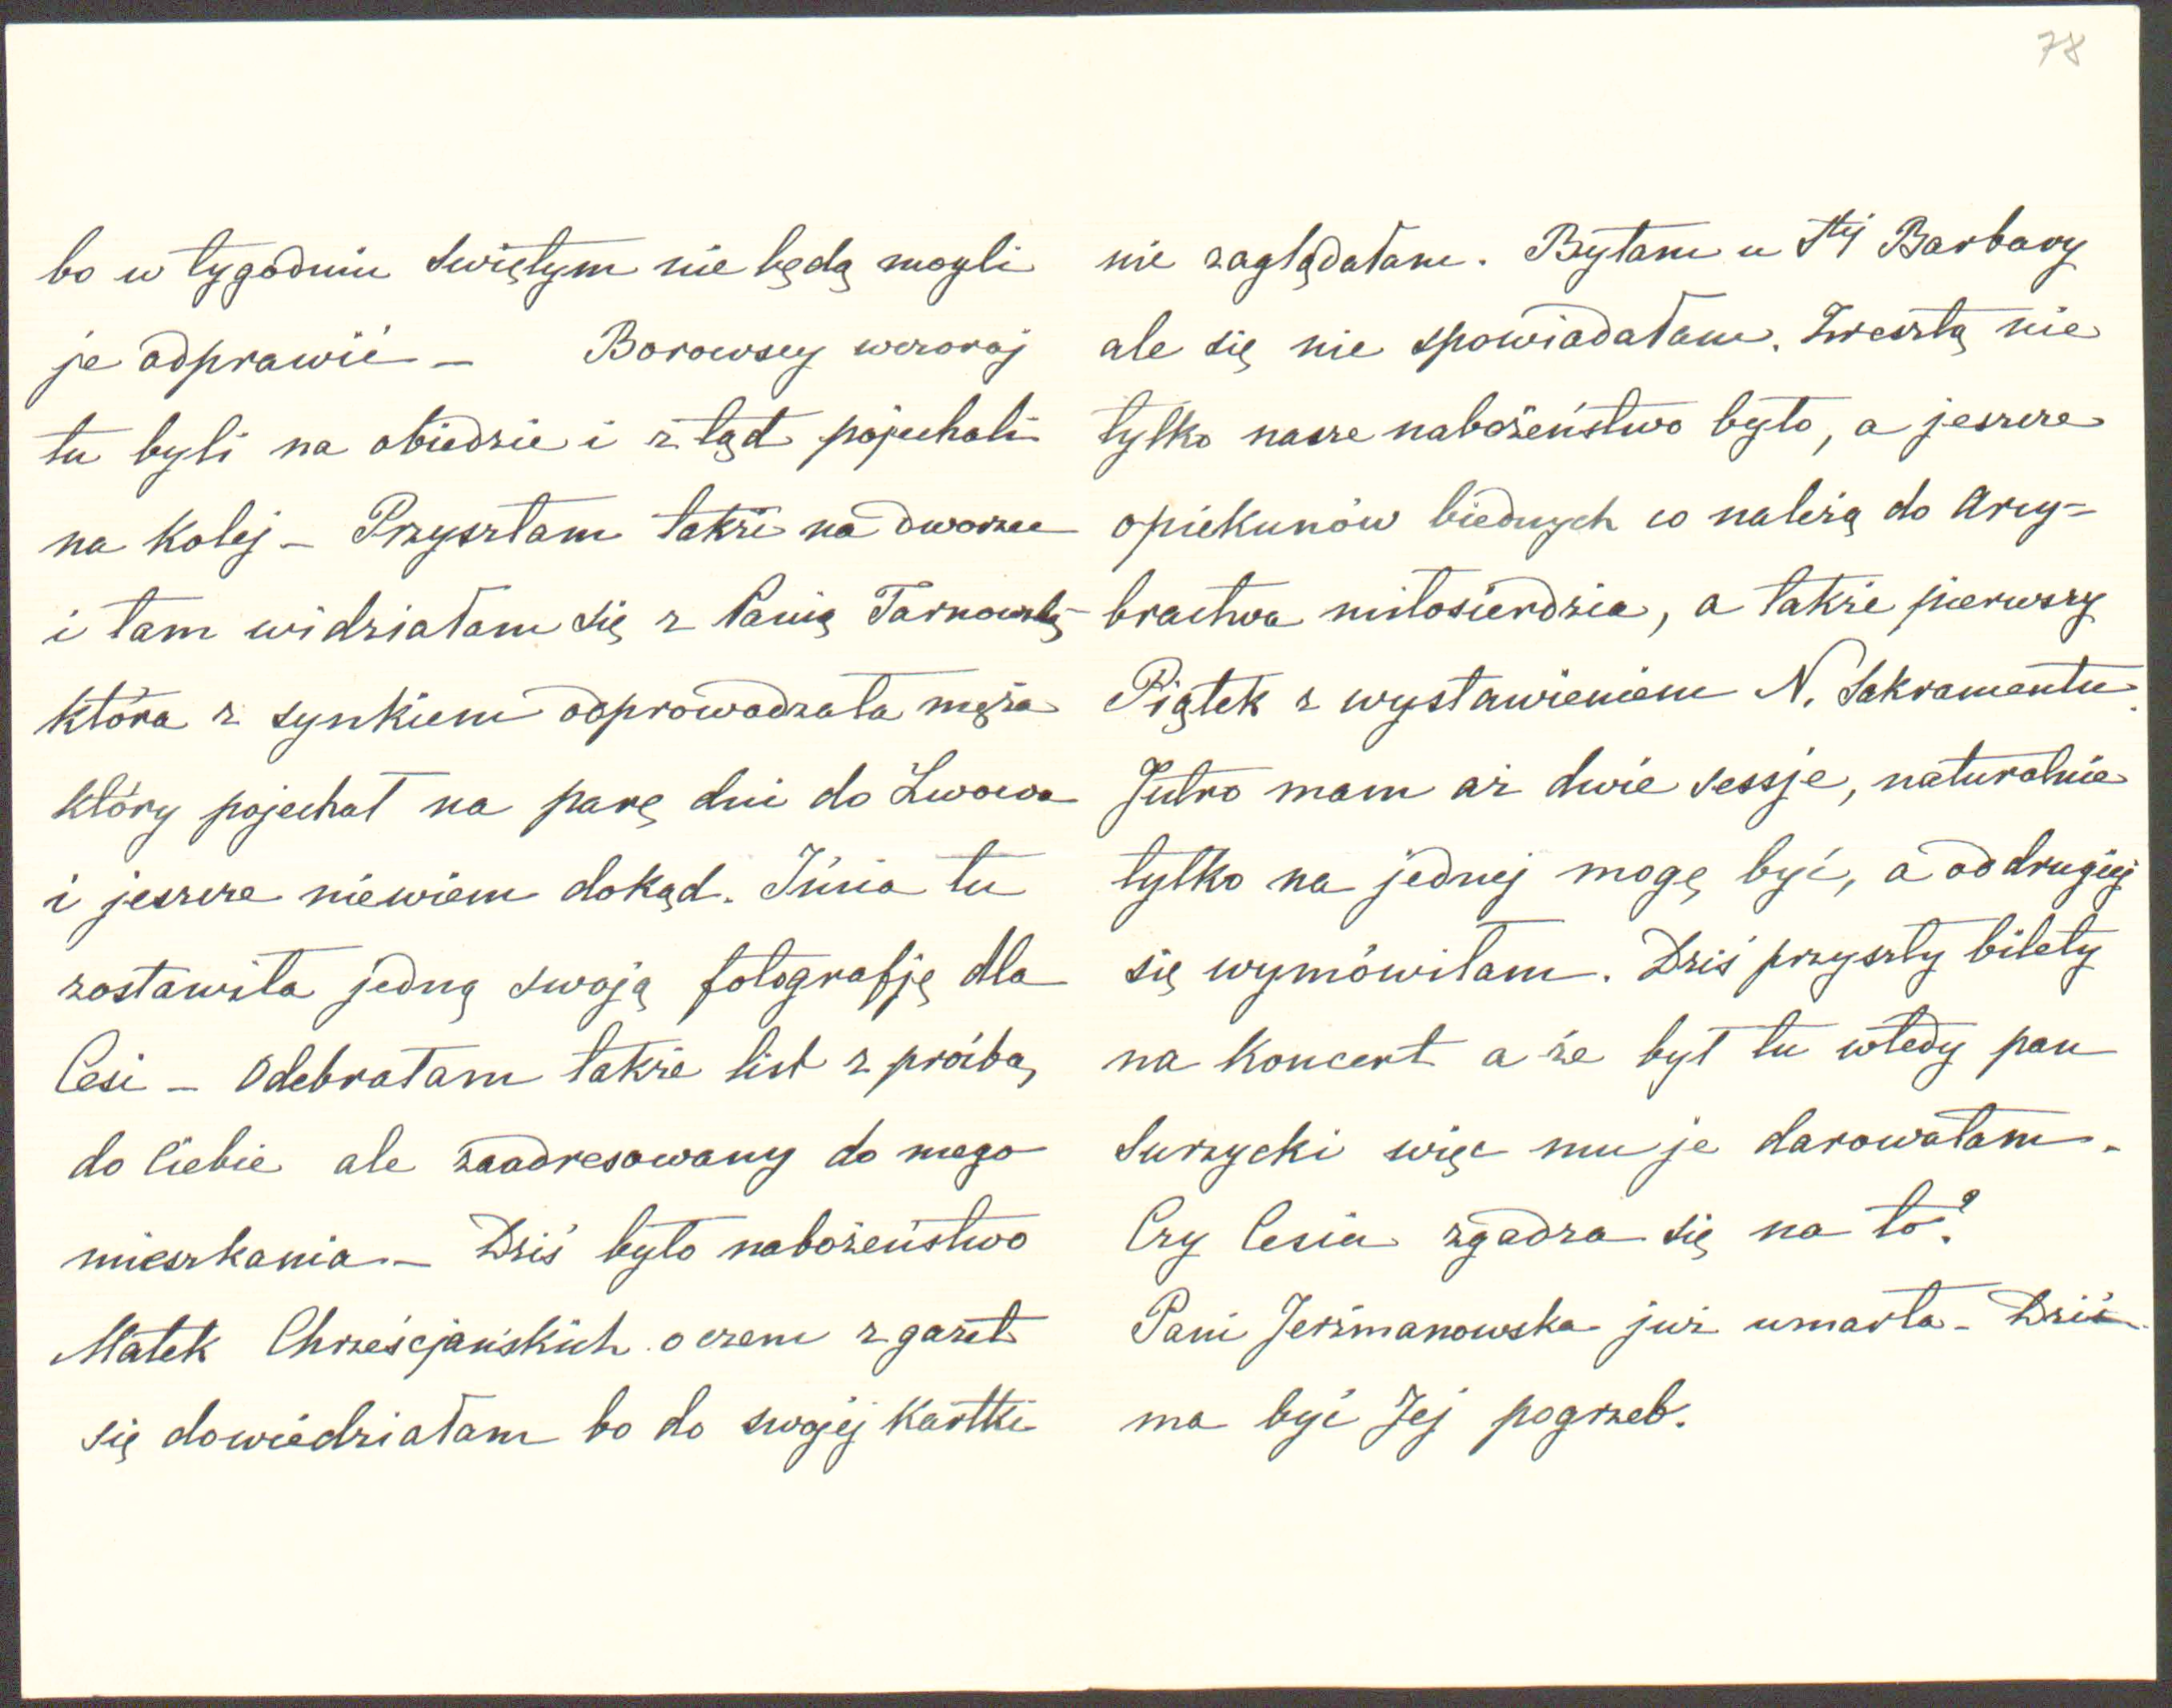 78
bo w tygodniu świętym nie będą mogli
je odprawić – Borowscy wczoraj
tu byli na obiedzie i ztąd pojechali
na kolej – Przyszłam także na dworzec
i tam widziałam się z Panią Tarnowską
która z synkiem odprowadzała męża
który pojechał na parę dni do Lwowa
i jeszcze niewiem dokąd. Iinia tu
zostawiła jedną swoją fotografję dla
Cesi – Odebrałam także list z prośbą
do Ciebie ale zaadresowany do mego
mieszkania – Dziś było nabożeństwo
Matek Chrześcjańskich o czem z gazet
się dowiedziałam bo do swojej kartki
nie zaglądałam. Byłam u Stej Barbary
ale się nie spowiadałam. Zresztą nie
tylko nasze nabożeństwo było, a jeszcze
opiekunów biednych co należą do Arcy=
bractwa miłosierdzia, a także pierwszy
Piątek z wystawieniem N. Sakramentu.
Jutro mam aż dwie sessje, naturalnie
tylko na jednej mogę być, a od drugiej
się wymówiłam. Dziś przyszły bilety
na koncert a że był tu wtedy pan
Surzycki więc mu je darowałam.
Czy Cesia zgadza się na to?
Pani Jerzmanowska już umarła – Dziś
ma być Jej pogrzeb.